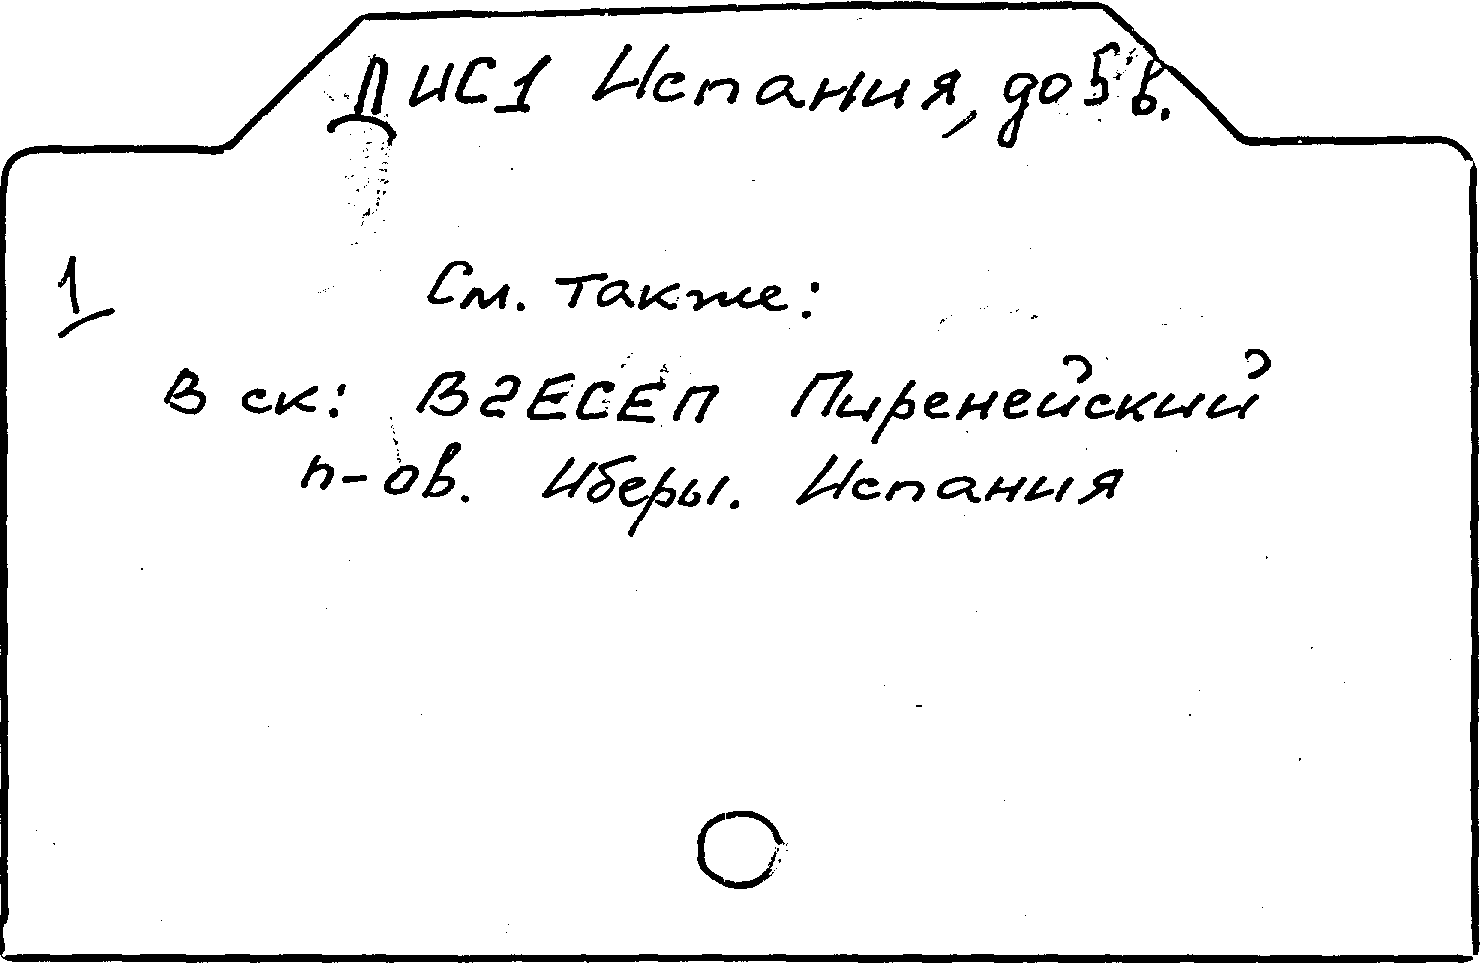 ДИС1 Испания, до 5 в.
1 См. также:
В ск: В2ЕСЕП Пиренейский
п-ов. Иберы. Испания